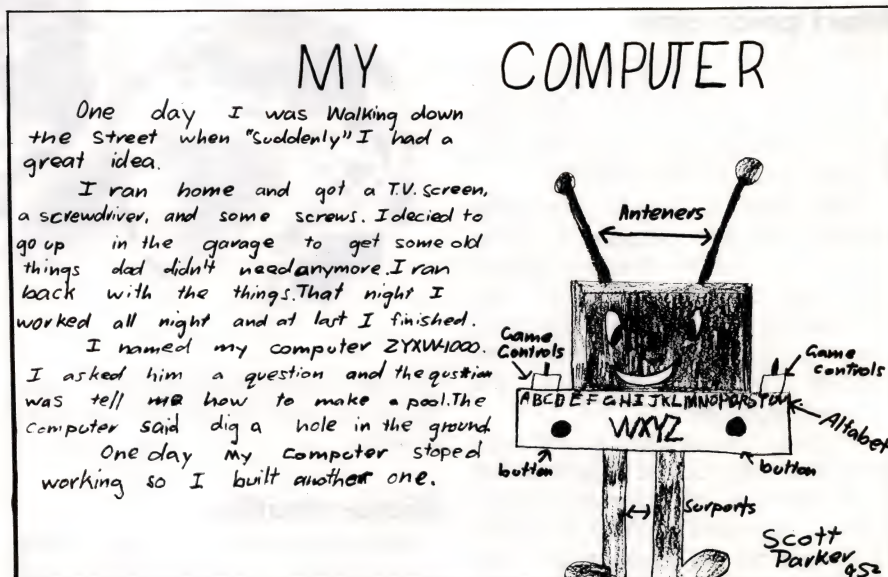 MY COMPUTER
One day I was Walking down
the Street when "Suddenly" I had a
great idea.
I ran home and got a T.V. Screen,
a screwdriver, and some screws. I decied to
go up in the garage to get some old
things dad didn't need anymore. I ran
back with the things. That night I
worked all night and at last I finished.
I named my computer ZYXW-1000.
I asked him a question and the qustion
was tell me how to make a pool. The
computer said dig a hole in the ground
One day my computer stoped
working so I built another one.
Anteners
Game
Controls
Game
controls
ABCDEFGHIJKLMNOPQRSTUV
WXYZ
Alfabet
button
button
Surports
Scott
Parker